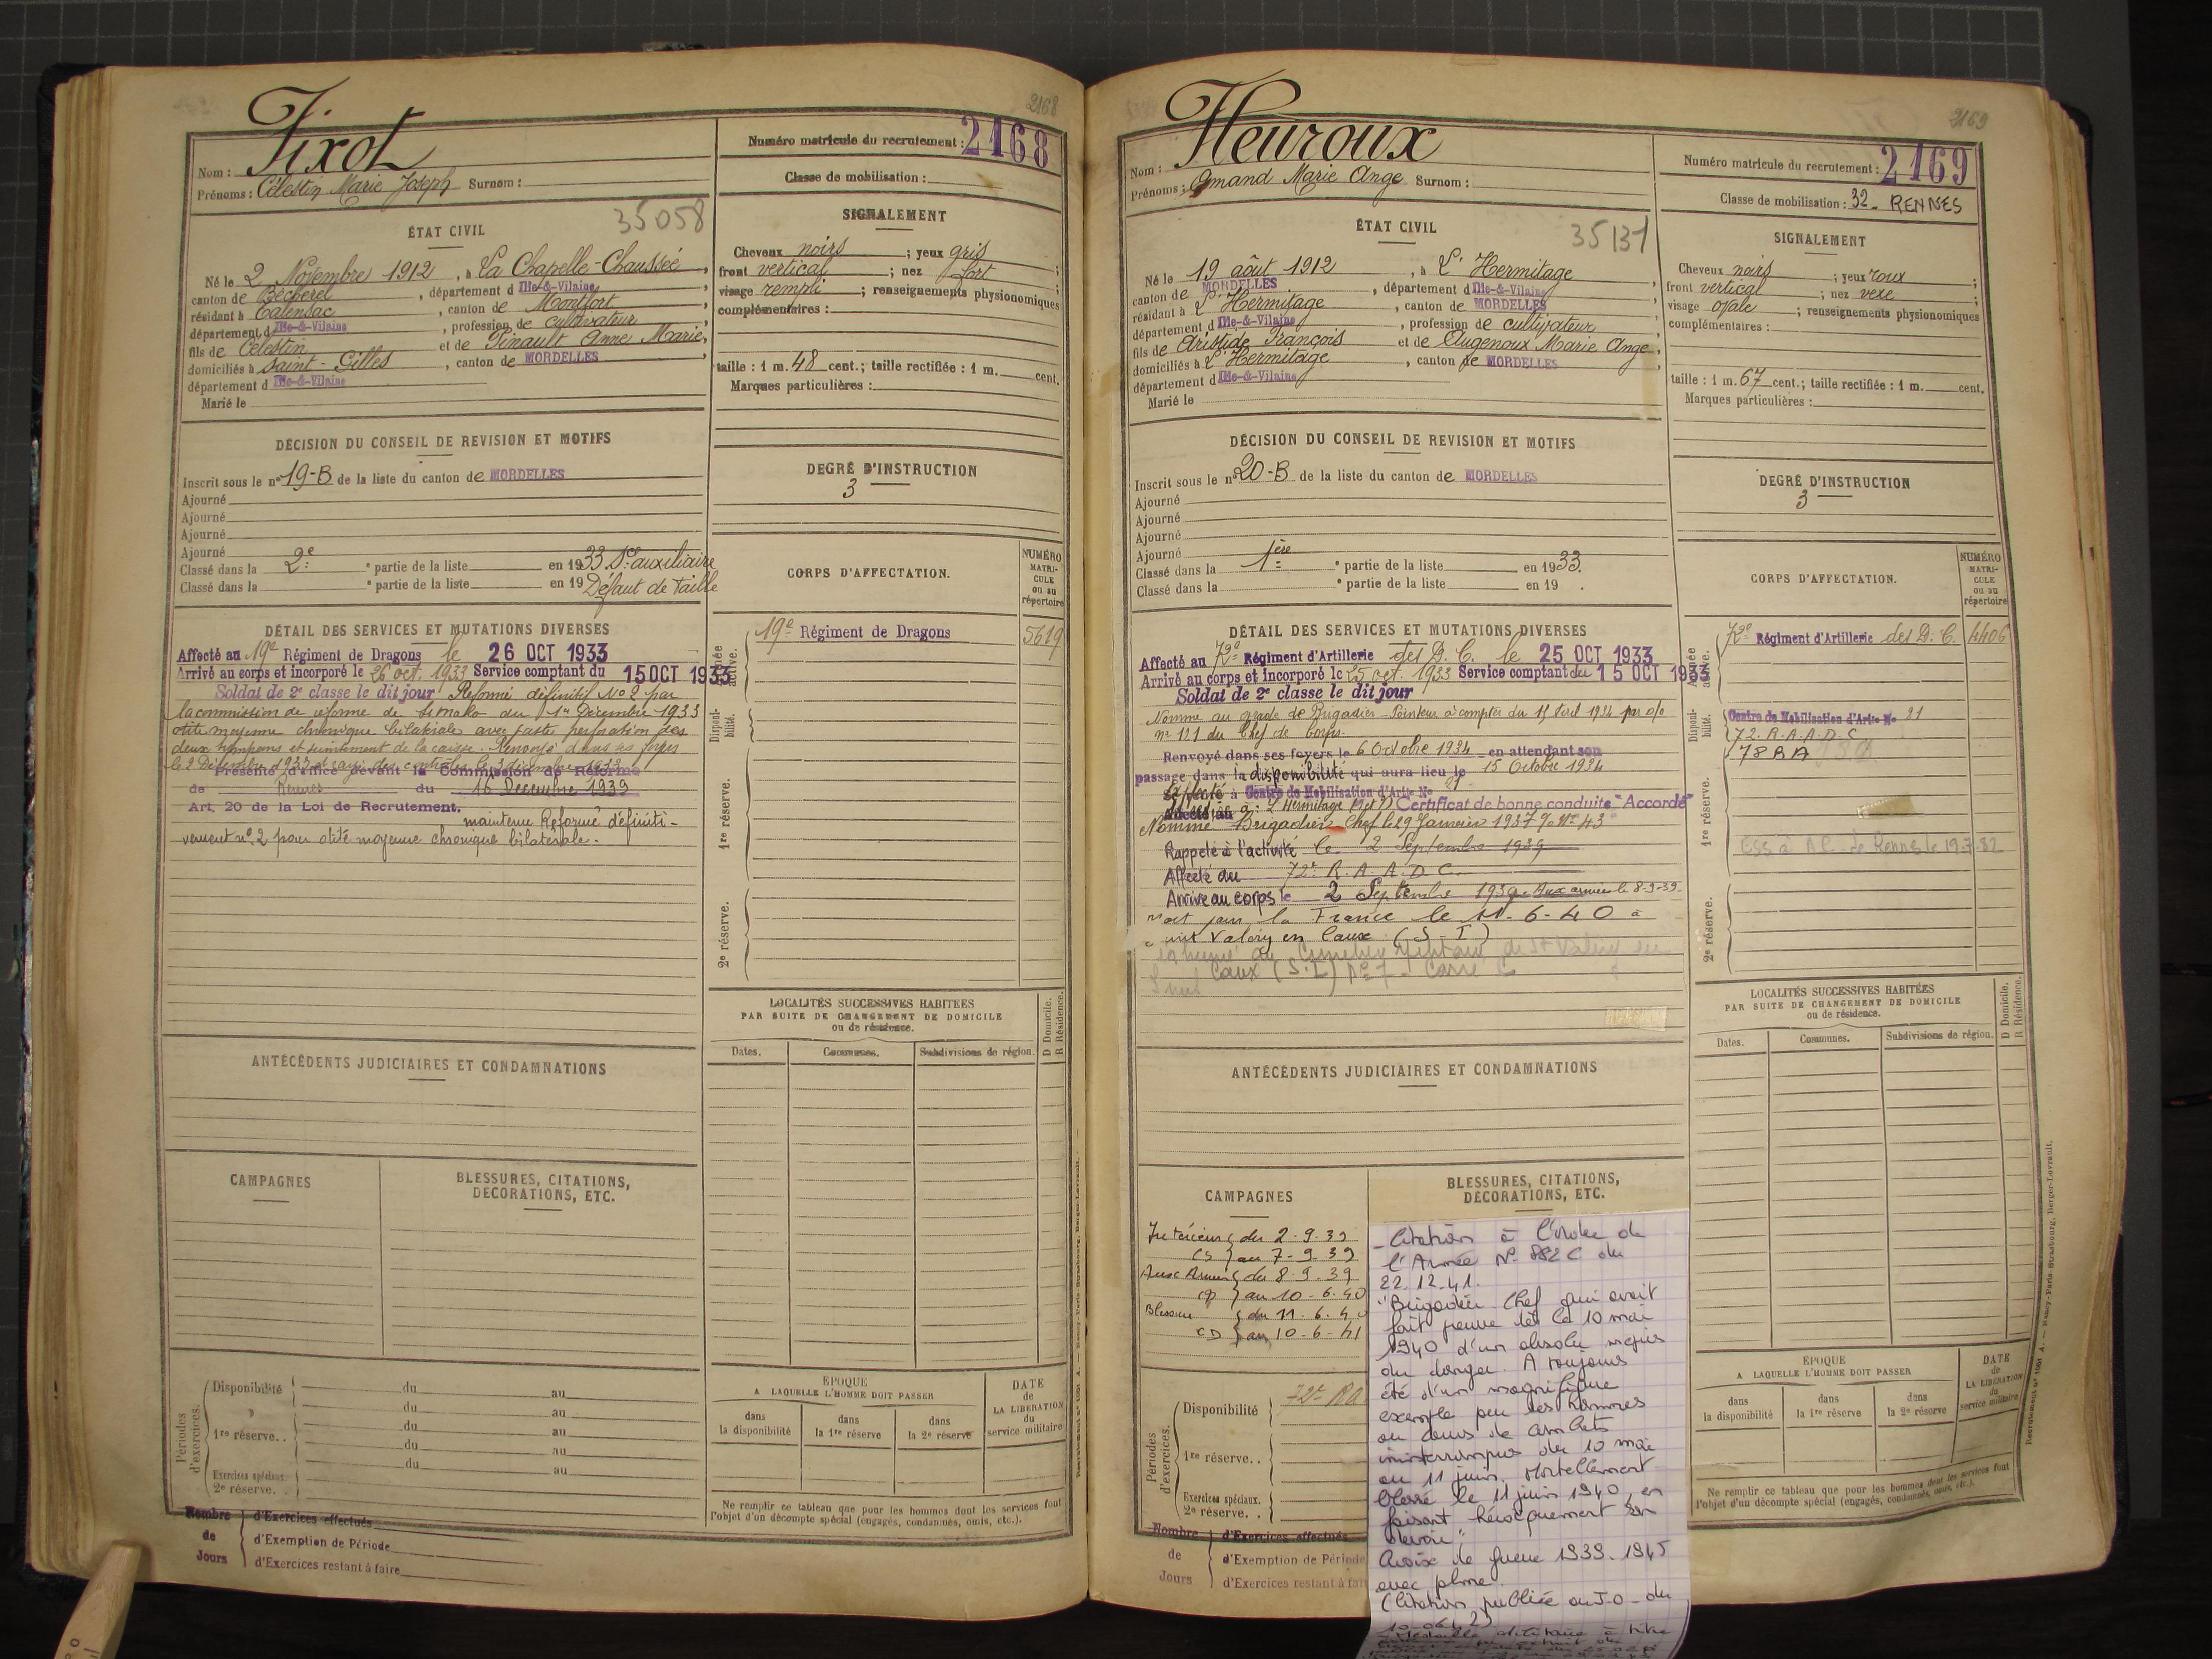 2168
Fixot
Nom :
Prénoms : Célestin Marie Joseph Surnom :
Numéro matricule du recrutement : 2168
Classe de mobilisation :
ÉTAT CIVIL
35058
Né le 2 Novembre 1912, à La Chapelle-Chaussée,
canton de Bécherel, département d Ille-&-Vilaine,
résidant à Talensac, canton de Montfort,
département d Ille-&-Vilaine, profession de cultivateur,
fils de Célestin et de Pinault Anne Marie,
domiciliés à Saint-Gilles, canton de MORDELLES,
département d Ille-&-Vilaine
Marié le
SIGNALEMENT
Cheveux noirs ; yeux gris ;
front vertical ; nez fort ;
visage rempli ; renseignements physionomiques
complémentaires :
taille : 1 m. 48 cent.; taille rectifiée : 1 m. cent.
Marques particulières :
DÉCISION DU CONSEIL DE REVISION ET MOTIFS
Inscrit sous le n° 19-B de la liste du canton de MORDELLES
Ajourné
Ajourné
Ajourné
Ajourné
Classé dans la 2e partie de la liste en 1933 Sce auxiliaire
Classé dans la e partie de la liste en 19 Défaut de taille
DEGRÉ D'INSTRUCTION
3
CORPS D'AFFECTATION.
NUMÉRO MATRI-CULE ou au répertoire
DÉTAIL DES SERVICES ET MUTATIONS DIVERSES
Affecté au 19e Régiment de Dragons le 26 OCT 1933
Arrivé au corps et incorporé le 26 oct. 1933 Service comptant du 15 OCT 1933
Soldat de 2e classe le dit jour Réformé définitif No 2 par
la commission de réforme de du 1er Décembre 1933
otite moyenne chronique bilatérale avec vaste perforation des
deux tympans et suintement de la caisse. Renvoyé dans ses foyers
le 2 Décembre 1933 et rayé des contrôles le 3 décembre 1933
Présenté d'office devant la Commission de Réforme
de Rennes du 16 Decembre 1939
Art. 20 de la Loi de Recrutement.
maintenu Réformé définiti-
vement n° 2 pour otite moyenne chronique bilatérale.
Armée active.
19e Régiment de Dragons 5619
Disponi-bilité.
1re réserve.
2e réserve.
LOCALITÉS SUCCESSIVES HABITÉES
PAR SUITE DE CHANGEMENT DE DOMICILE
ou de résidence.
Dates. Communes. Subdivisions de région. D Domicile. R Résidence.
ANTÉCÉDENTS JUDICIAIRES ET CONDAMNATIONS
CAMPAGNES
BLESSURES, CITATIONS,
DÉCORATIONS, ETC.
Périodes d'exercices.
Disponibilité du au
du au
1re réserve.. du au
du au
du au
Exercices spéciaux.
2e réserve. .
ÉPOQUE
A LAQUELLE L'HOMME DOIT PASSER
dans la disponibilité
dans la 1re réserve
dans la 2e réserve
DATE de LA LIBÉRATION du service militaire
Ne remplir ce tableau que pour les hommes dont les services font
l'objet d'un décompte spécial (engagés, condamnés, omis, etc.).
Nombre de Jours
d'Exercices effectués
d'Exemption de Période
d'Exercices restant à faire
2169
Heuroux
Nom :
Prénoms : Amand Marie Ange Surnom :
Numéro matricule du recrutement : 2169
Classe de mobilisation : 32 - RENNES
ÉTAT CIVIL
35131
Né le 19 août 1912, à L'Hermitage
canton de MORDELLES, département d Ille-&-Vilaine,
résidant à L'Hermitage, canton de MORDELLES,
département d Ille-&-Vilaine, profession de cultivateur,
fils de Aristide François et de Augenoux Marie Ange,
domiciliés à L'Hermitage, canton de MORDELLES
département d Ille-&-Vilaine
Marié le
SIGNALEMENT
Cheveux noirs ; yeux roux ;
front vertical ; nez vexe ;
visage ovale ; renseignements physionomiques
complémentaires :
taille : 1 m. 67 cent.; taille rectifiée : 1 m. cent.
Marques particulières :
DÉCISION DU CONSEIL DE REVISION ET MOTIFS
Inscrit sous le n° 20-B de la liste du canton de MORDELLES
Ajourné
Ajourné
Ajourné
Ajourné
Classé dans la 1ère partie de la liste en 1933.
Classé dans la e partie de la liste en 19 .
DEGRÉ D'INSTRUCTION
3
CORPS D'AFFECTATION.
NUMÉRO MATRI-CULE ou au répertoire
DÉTAIL DES SERVICES ET MUTATIONS DIVERSES
Affecté au 72e Régiment d'Artillerie des D. C. le 25 OCT 1933
Arrivé au corps et incorporé le 25 oct. 1933 Service comptant du 15 OCT 1933
Soldat de 2e classe le dit jour
Nommé au grade de Brigadier-Pointeur à compter du 15 Avril 1934 par o/o
n° 121 du Chef de Corps.
Renvoyé dans ses foyers le 6 Octobre 1934 en attendant son
passage dans la disponibilité qui aura lieu le 15 Octobre 1934
Affecté à Centre de Mobilisation d'Artie No 21
à L'Hermitage Certificat de bonne conduite "Accordé"
Nommé Brigadier-Chef le 29 Janvier 1937 % No 43
Rappelé à l'activité le 2 Septembre 1939
Affecté au 72e R. A. A. D. C.
Arrivé au corps le 2 Septembre 1939 Aux armées le 8-9-39.
Mort pour la France le 11-6-40 à
Saint Valéry en Caux (S-I)
Inhumé au Cimetière Militaire de St Valéry en
Caux (S.I.) No 7 - Carré C
Armée active.
72e Régiment d'Artillerie des D. C. 4406
Disponi-bilité.
Centre de Mobilisation d'Artie No 21
72. R.A.A.D.C
78 RA
1re réserve.
ESS à AC de Rennes le 19.7.82
2e réserve.
LOCALITÉS SUCCESSIVES HABITÉES
PAR SUITE DE CHANGEMENT DE DOMICILE
ou de résidence.
Dates. Communes. Subdivisions de région. D Domicile. R Résidence.
ANTÉCÉDENTS JUDICIAIRES ET CONDAMNATIONS
CAMPAGNES
Intérieur du 2-9-39
CS au 7-9-39
Aux Armées du 8-9-39
CD au 10-6-40
Blessure du 11-6-40
CD au 10-6-41
BLESSURES, CITATIONS,
DÉCORATIONS, ETC.
- Citation à l'ordre de
l'Armée N° 882 C du
22.12.41.
"Brigadier Chef qui avait
fait preuve dès le 10 mai
1940 d'un absolu mépris
du danger. A toujours
été d'un magnifique
exemple pour les hommes
au cours de combats
ininterrompus du 10 mai
au 11 juin. Mortellement
blessé le 11 juin 1940, en
faisant héroïquement son
devoir"
Croix de guerre 1939-1945
avec palme.
(Citation publiée au J-O- du
Médaille militaire à titre
Périodes d'exercices.
Disponibilité 72e RA
1re réserve. .
Exercices spéciaux.
2e réserve. .
ÉPOQUE
A LAQUELLE L'HOMME DOIT PASSER
dans la disponibilité
dans la 1re réserve
dans la 2e réserve
DATE de LA LIBÉRATION du service militaire
Ne remplir ce tableau que pour les hommes dont les services font
l'objet d'un décompte spécial (engagés, condamnés, omis, etc.).
Nombre de Jours
d'Exercices effectués
d'Exemption de Période
d'Exercices restant à fai